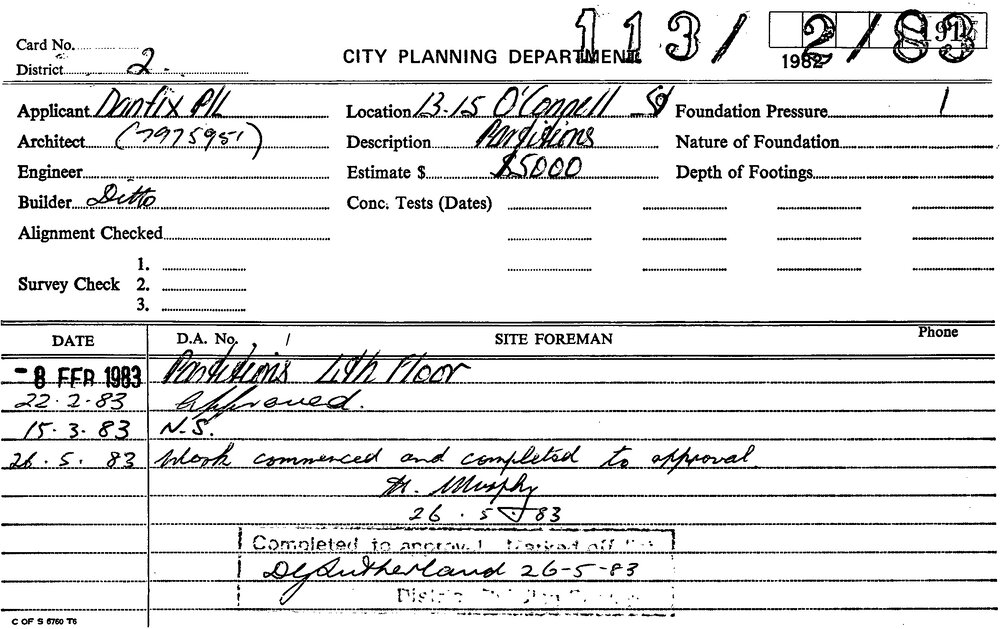 113/2/83
Card No.
CITY PLANNING DEPARTMENT
1982
District 2.
Applicant Danfix P/L
Location 13-15 O'Connell St
Foundation Pressure /
Architect (7975951)
Description Partitions
Nature of Foundation
Engineer
Estimate $ $5000
Depth of Footings
Builder Ditto
Conc. Tests (Dates)
Alignment Checked
Survey Check
1.
2.
3.
DATE D.A. No. / SITE FOREMAN Phone
-8 FEB 1983 Partitions 4th Floor
22.2.83 Approved.
15.3.83 N.S.
26.5.83 Work commenced and completed to approval
M. Murphy
26.5.83
Completed to approval Marked off list
DG Sutherland 26-5-83
District
C OF S 6760 T6